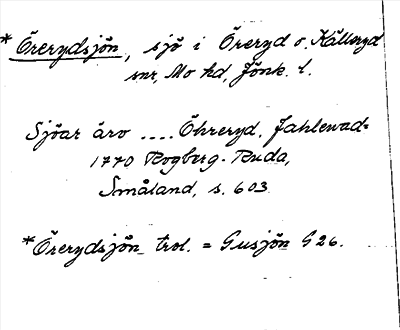 * Örerydsjön, sjö i Öreryd o. Källeryd
snr, Mo hd, Jönk. l.
Sjöar äro .... Öhreryd, Fahlewad=
1770 Rogberg-Ruda,
Småland, s. 603
* Örerydsjön trol. = Gusjön G 26.